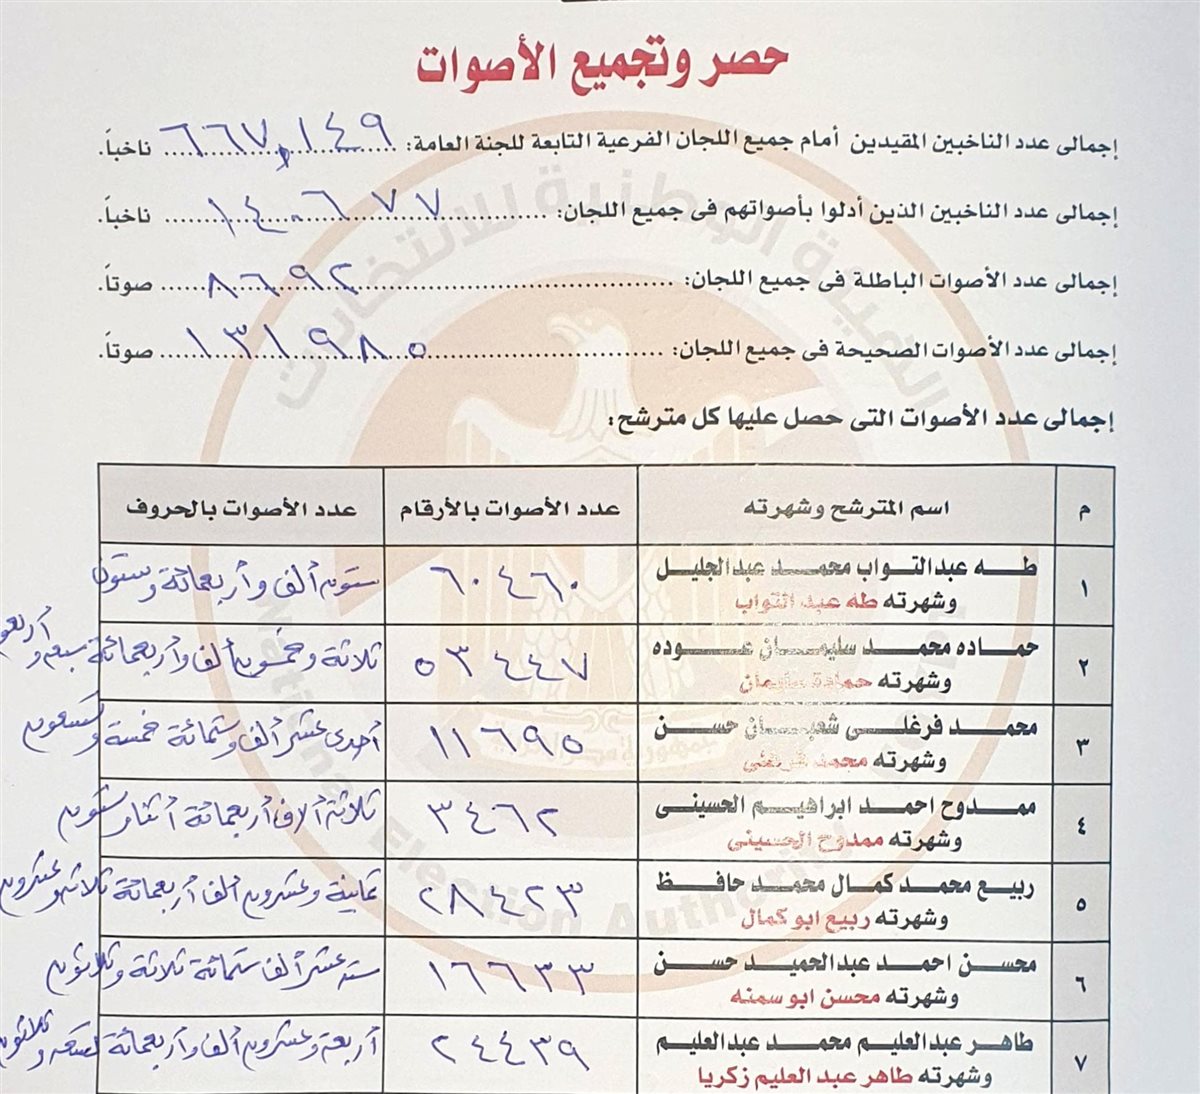 حصر وتجميع الأصوات
إجمالى عدد الناخبين المقيدين أمام جميع اللجان الفرعية التابعة للجنة العامة: ٦٦٧,١٤٩ ناخباً.
إجمالى عدد الناخبين الذين أدلوا بأصواتهم فى جميع اللجان: ١٤٠٦٧٧ ناخباً.
إجمالى عدد الأصوات الباطلة فى جميع اللجان: ٨٦٩٢ صوتاً.
إجمالى عدد الأصوات الصحيحة فى جميع اللجان: ١٣١٩٨٥ صوتاً.
إجمالى عدد الأصوات التى حصل عليها كل مترشح:
م اسم المترشح وشهرته عدد الأصوات بالأرقام عدد الأصوات بالحروف
١ طـه عبدالتواب محمد عبدالجليل ٦٠٤٦٠ ستون ألف وأربعمائة وستون
وشهرته طه عبد التواب
٢ حماده محمد سليمان عوده ٥٣٤٤٧ ثلاثة وخمسون ألف وأربعمائة سبعه وأربعون
وشهرته حمادة سليمان
٣ محمد فرغلى شعبان حسن ١١٦٩٥ أحدى عشر ألف وستمائة خمسة وتسعون
وشهرته محمد فرغلي
٤ ممدوح احمد ابراهيم الحسينى ٣٤٦٢ ثلاثة ألاف أربعمائة أثنا وستون
وشهرته ممدوح الحسيني
٥ ربيع محمد كمال محمد حافظ ٢٨٤٢٣ ثمانية وعشرون ألف أربعمائة ثلاثه وعشرون
وشهرته ربيع ابو كمال
٦ محسن احمد عبدالحميد حسن ١٦٦٣٣ سته عشر ألف ستمائة ثلاثة وثلاثون
وشهرته محسن ابو سمنه
٧ طاهر عبدالعليم محمد عبدالعليم ٢٤٤٣٩ أربعة وعشرون ألف وأربعمائة تسعه وثلاثون
وشهرته طاهر عبد العليم زكريا
الهيئة الوطنية للانتخابات
جمهورية مصر العربية
National Election Authority